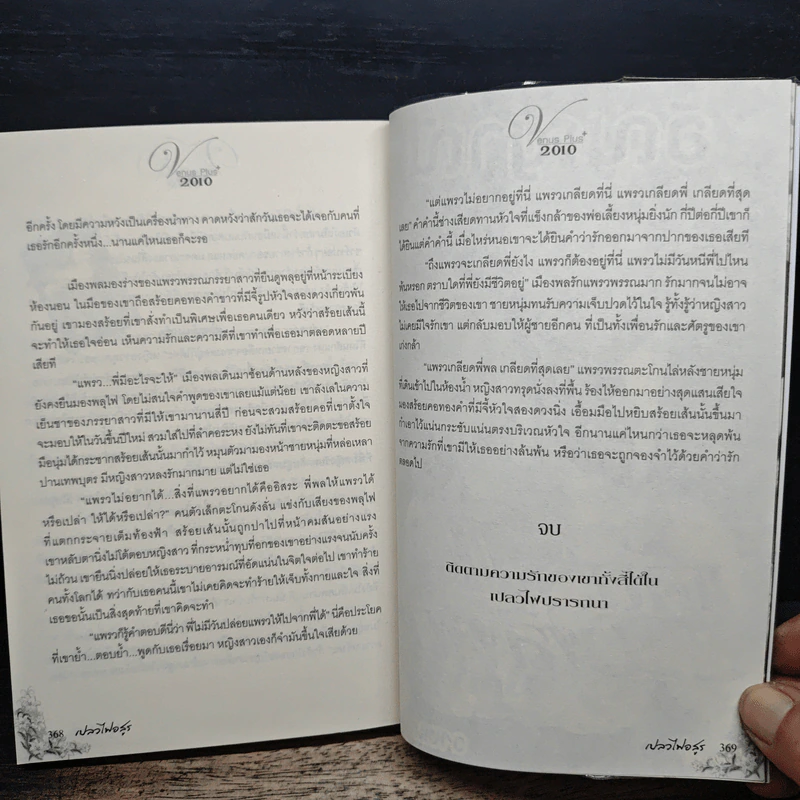 Venus Plus+
2010
อีกครั้ง โดยมีความหวังเป็นเครื่องนำทาง คาดหวังว่าสักวันเธอจะได้เจอกับคนที่
เธอรักอีกครั้งหนึ่ง...นานแค่ไหนเธอก็จะรอ
เมืองพลมองร่างของแพรวพรรณภรรยาสาวที่ยืนดูพลุอยู่ที่หน้าระเบียง
ห้องนอน ในมือของเขาถือสร้อยคอทองคำขาวที่มีจี้รูปหัวใจสองดวงเกี่ยวพัน
กันอยู่ เขามองสร้อยที่เขาสั่งทำเป็นพิเศษเพื่อเธอคนเดียว หวังว่าสร้อยเส้นนี้
จะทำให้เธอใจอ่อน เห็นความรักและความดีที่เขาทำเพื่อเธอมาตลอดหลายปี
เสียที
“แพรว...พี่มีอะไรจะให้” เมืองพลเดินมาซ้อนด้านหลังของหญิงสาวที่
ยังคงยืนมองพลุไฟ โดยไม่สนใจคำพูดของเขาเลยแม้แต่น้อย เขาลังเลในความ
เย็นชาของภรรยาสาวที่มีให้เขามานานสี่ปี ก่อนจะสวมสร้อยคอที่เขาตั้งใจ
จะมอบให้ในวันขึ้นปีใหม่ สวมใส่ไปที่ลำคอระหง ยังไม่ทันที่เขาจะติดตะขอสร้อย
มือนุ่มได้กระชากสร้อยเส้นนั้นมากำไว้ หมุนตัวมามองหน้าชายหนุ่มที่หล่อเหลา
ปานเทพบุตร มีหญิงสาวหลงรักมากมาย แต่ไม่ใช่เธอ
“แพรวไม่อยากได้...สิ่งที่แพรวอยากได้คืออิสระ พี่พลให้แพรวได้
หรือเปล่า ให้ได้หรือเปล่า?” คนตัวเล็กตะโกนดังลั่น แข่งกับเสียงของพลุไฟ
ที่แตกกระจายเต็มท้องฟ้า สร้อยเส้นนั้นถูกปาไปที่หน้าคมสันอย่างแรง
เขาหลับตานิ่งไม่โต้ตอบหญิงสาว ที่กระหน่ำทุบที่อกของเขาอย่างแรงจนนับครั้ง
ไม่ถ้วน เขายืนนิ่งปล่อยให้เธอระบายอารมณ์ที่อัดแน่นในจิตใจต่อไป เขาทำร้าย
คนทั้งโลกได้ ทว่ากับเธอคนนี้เขาไม่เคยคิดจะทำร้ายให้เจ็บทั้งกายและใจ สิ่งที่
เธอขอนั้นเป็นสิ่งสุดท้ายที่เขาคิดจะทำ
“แพรวก็รู้คำตอบดีนี่ว่า พี่ไม่มีวันปล่อยแพรวให้ไปจากพี่ได้” นี่คือประโยค
ที่เขาย้ำ...ตอบย้ำ...พูดกับเธอเรื่อยมา หญิงสาวเองก็จำมันขึ้นใจเสียด้วย
368 เปลวไฟอสูร
Venus Plus+
2010
“แต่แพรวไม่อยากอยู่ที่นี่ แพรวเกลียดที่นี่ แพรวเกลียดพี่ เกลียดที่สุด
เลย” คำคำนี้ช่างเสียดทานหัวใจที่แข็งกล้าของพ่อเลี้ยงหนุ่มยิ่งนัก กี่ปีต่อกี่ปีเขาก็
ได้ยินแต่คำคำนี้ เมื่อไหร่หนอเขาจะได้ยินคำว่ารักออกมาจากปากของเธอเสียที
“ถึงแพรวจะเกลียดพี่ยังไง แพรวก็ต้องอยู่ที่นี่ แพรวไม่มีวันหนีพี่ไปไหน
พ้นหรอก ตราบใดที่พี่ยังมีชีวิตอยู่” เมืองพลรักแพรวพรรณมาก รักมากจนไม่อาจ
ให้เธอไปจากชีวิตของเขา ชายหนุ่มทนรับความเจ็บปวดไว้ในใจ รู้ทั้งรู้ว่าหญิงสาว
ไม่เคยมีใจรักเขา แต่กลับมอบให้ผู้ชายอีกคน ที่เป็นทั้งเพื่อนรักและศัตรูของเขา
เก่งกล้า
“แพรวเกลียดพี่พล เกลียดที่สุดเลย” แพรวพรรณตะโกนไล่หลังชายหนุ่ม
ที่เดินเข้าไปในห้องน้ำ หญิงสาวทรุดนั่งลงที่พื้น ร้องไห้ออกมาอย่างสุดแสนเสียใจ
มองสร้อยคอทองคำที่มีจี้หัวใจสองดวงนิ่ง เอื้อมมือไปหยิบสร้อยเส้นนั้นขึ้นมา
กำเอาไว้แน่นกระชับแน่นตรงบริเวณหัวใจ อีกนานแค่ไหนกว่าเธอจะหลุดพ้น
จากความรักที่เขามีให้เธออย่างล้นพ้น หรือว่าเธอจะถูกจองจำไว้ด้วยคำว่ารัก
ตลอดไป
จบ
ติดตามความรักของเขาทั้งสี่ได้ใน
เปลวไฟปรารถนา
เปลวไฟอสูร 369